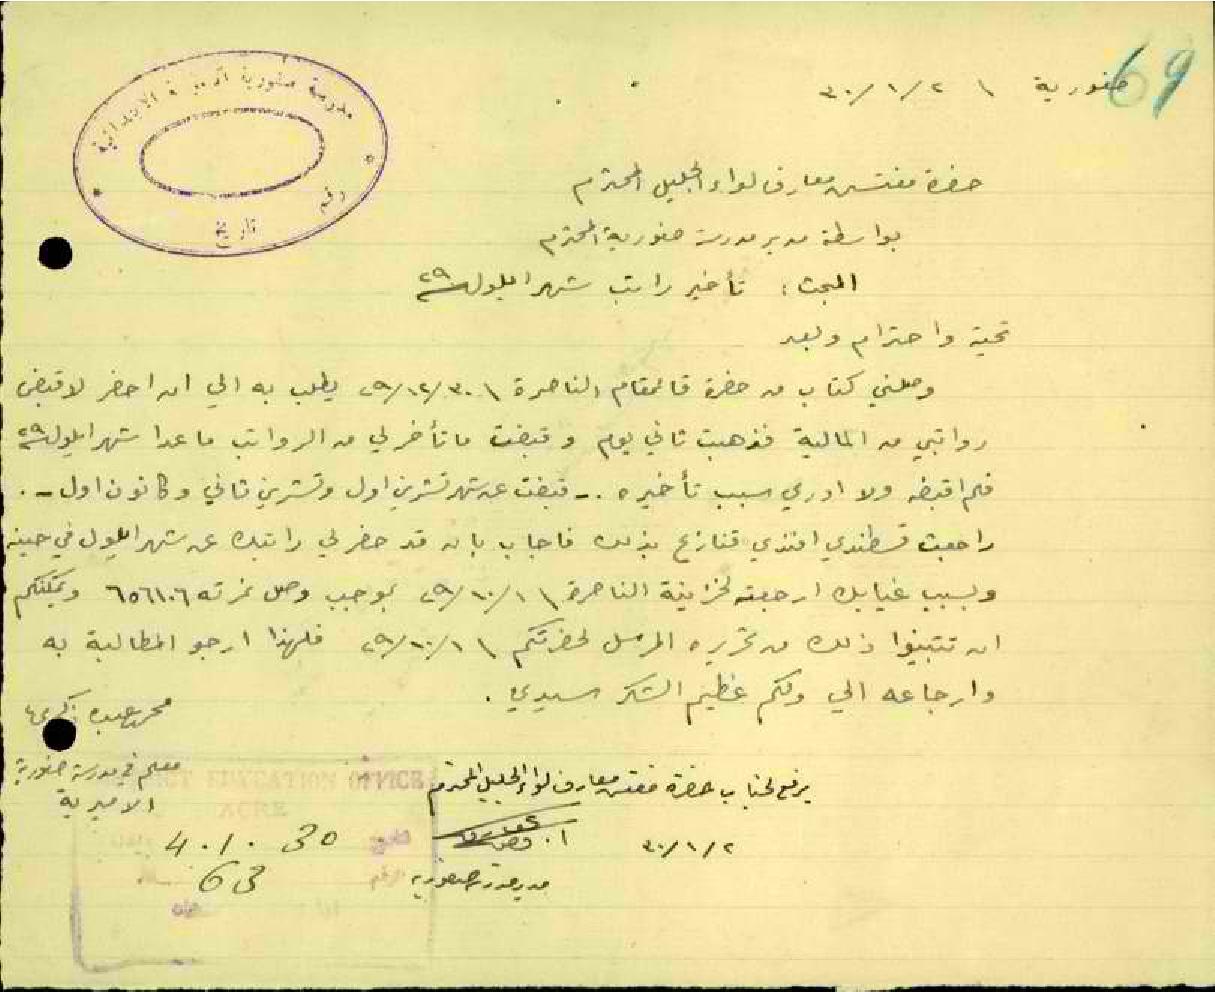 69
صفورية \ ٢/١/٣٠
مدرسة صفورية الاميرية الابتدائية
رقم
تاريخ
حضرة مفتش معارف لواء الجليل المحترم
بواسطة مدير مدرسة صفورية المحترم
المبحث: تأخير راتب شهر ايلول ٢٩
تحية واحترام وبعد
وصلني كتاب من حضرة قائمقام الناصرة \ ٢٩/١٢/٣٠ يطلب به الي ان احضر لاقبض
رواتبي من المالية فذهبت ثاني يوم وقبضت ما تأخر لي من الرواتب ما عدا شهر ايلول ٢٩
فلم اقبضه ولا ادري سبب تأخيره .- قبضت عن شهر تشرين اول وتشرين ثاني وكانون اول -.
راجعت قسطندي افندي قنازع بذلك فاجاب بانه قد حضر لي راتبك عن شهر ايلول في حينه
وبسبب غيابك ارجعته لخزينة الناصرة \ ٢٩/١٠/١ بموجب وصل نمرته ٦٥٦١٠٦ ويمكنكم
ان تتبينوا ذلك من تحريره المرسل لحضرتكم \ ٢٩/١٠/١ فلهذا ارجو المطالبة به
وارجاعه الي ولكم عظيم الشكر سيدي .
محمد عبده
معلم في مدرسة صفورية
الاميرية
يرفع لجناب حضرة مفتش معارف لواء الجليل المحترم
٣٠/١/٢
مدير مدرسة صفورية
DISTRICT EDUCATION OFFICE
ACRE
4.1.30
63
الرقم